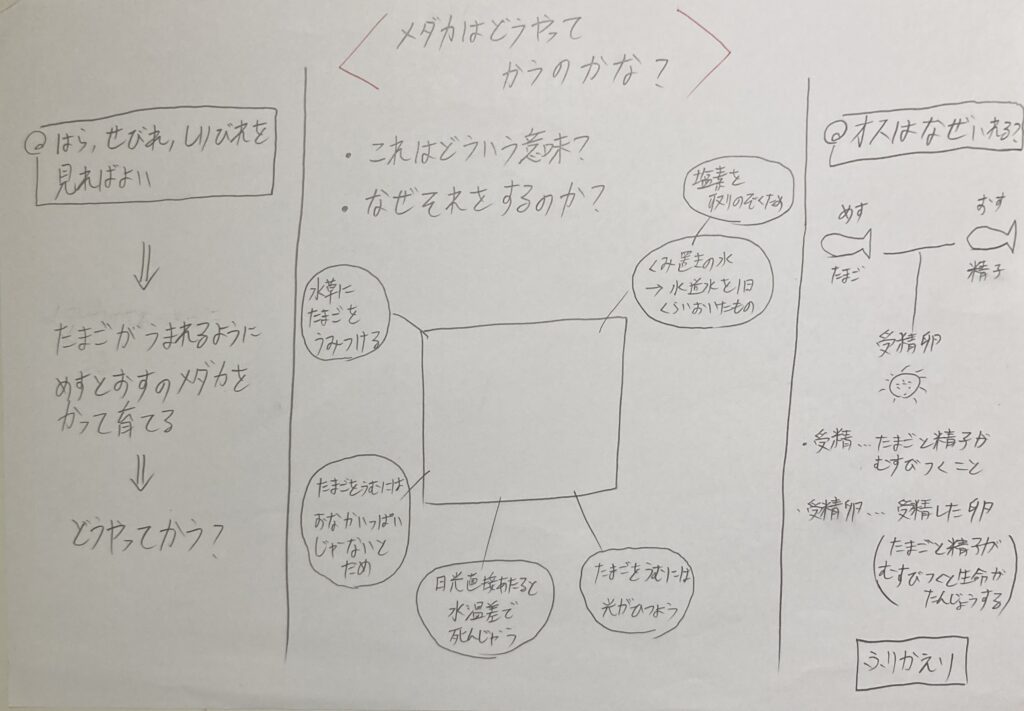 メダカはどうやって
かうのかな?
はら,せびれ,しりびれを
見ればよい
たまごがうまれるように
めすとおすのメダカを
かって育てる
どうやってかう?
・これはどういう意味?
・なぜそれをするのか?
塩素を
取りのぞくため
くみ置きの水
→水道水を1日
くらいおいたもの
水草に
たまごを
うみつける
たまごをうむには
おなかいっぱい
じゃないと
だめ
日光直接あたると
水温差で
死んじゃう
たまごをうむには
光がひつよう
オスはなぜいれる?
めす
おす
たまご
精子
受精卵
・受精…たまごと精子が
むすびつくこと
・受精卵…受精した卵
(たまごと精子が
むすびつくと生命が
たんじょうする)
ふりかえり